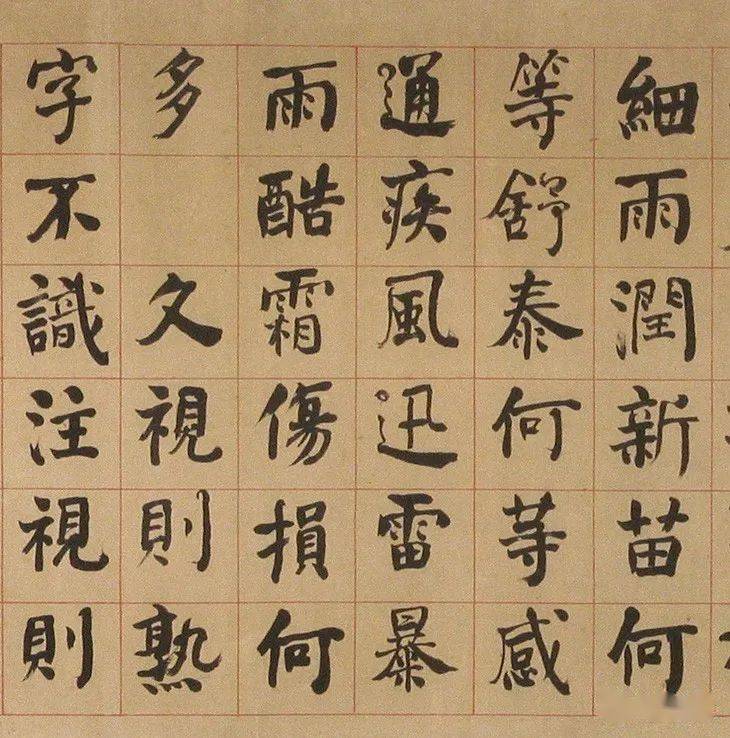 細雨潤新苗何
等舒泰何等感
通疾風迅雷暴
雨酷霜傷損何
多久視則熟
字不識注視則